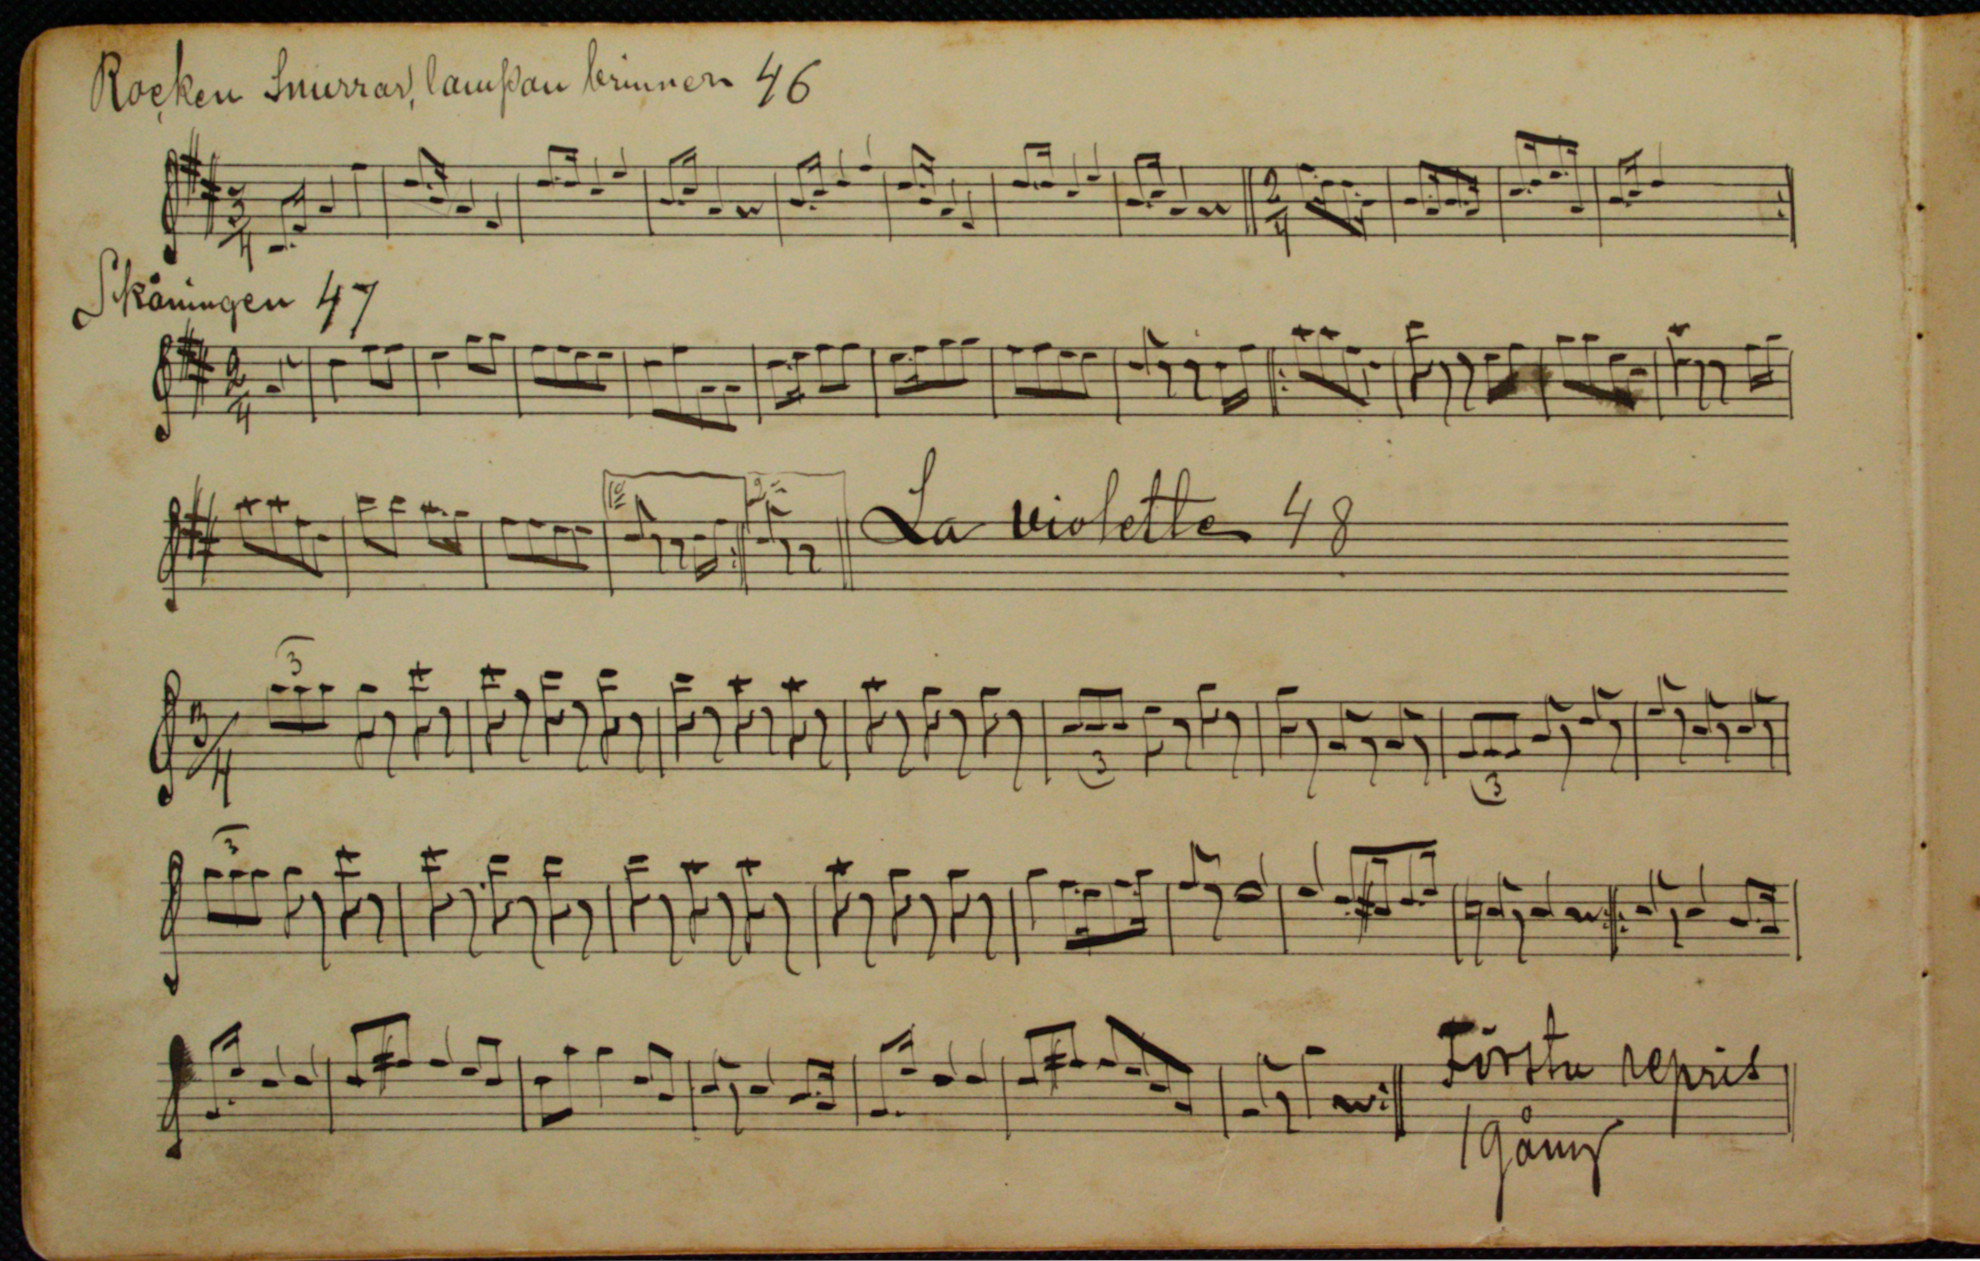 Rocken Snurrar, lampan brinner 46
3/4
2/4
Skåningen 47
2/4
1
2
La violette 48
3
3/4
3
3
3
Första repris
1 gång